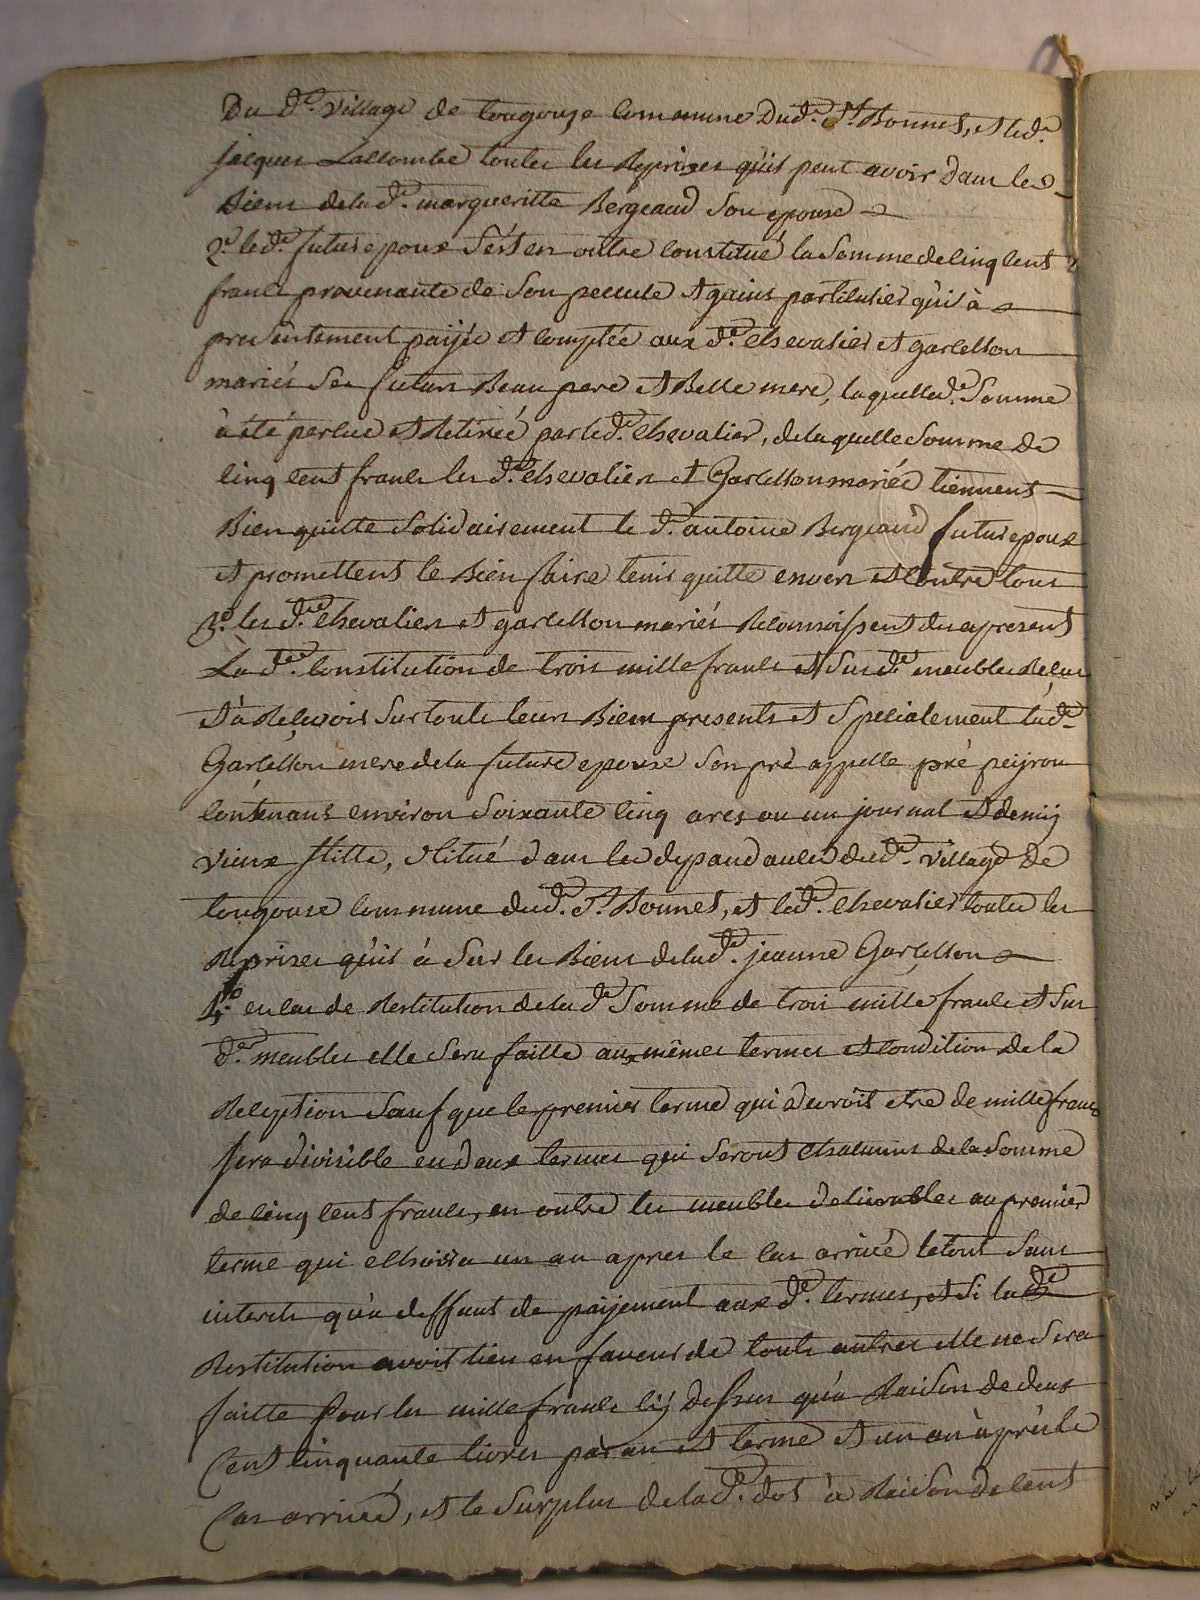 Du d.t village de tougouze commune Dud.t S.t Bonnet, et led.t
jacques Lacombe toutes les Reprises qu'il peut avoir dans les
Biens de la d.e margueritte Bergeaud son epouse
2.o le d.t futur epoux s'est en outre constitué la somme de cinq cent
francs provenante de son peccule et gains particulier qu'il à
presentement paijée et comptée aux d.ts chevalier et garcelon
mariés ses futurs Beau pere et Belle mere, laquelle d.e somme
à été percue et Retirée par led.t chevalier, de laquelle somme de
cinq cent francs les d.ts chevalier et Garcelon mariés tiennent
Bien quitte solidairement le d.t antoine Bergeaud futur epoux
et promettent le Bien faire tenir quitte envers et contre tous
3.o les d.ts chevalier et garcelon mariés Reconnoissent des apresent
La d.e constitution de trois mille francs et sus d.ts meubles Recus
et à Recevoir sur touts leurs Biens presents et specialement lad.e
Garcelon mere de la future epouse son pré appellé pré peijrou
contenant environ soixante cinq ares ou un journal et demij
vieux stille, situé dans les dependances dud.t village de
tougouse commune dud.t S.t Bonnet, et led.t chevalier toutes les
Reprises qu'il à sur les Biens de lad.e jeanne Garcelon
4.o en cas de Restitution de la d.e somme de trois mille francs et sus
d.ts meubles elle sera faitte aux mêmes termes et condition de la
Reception sauf que le premier terme qui devroit etre de mille francs
sera divisible en deux termes qui seront chacuns de la somme
de cinq cent francs, en outre les meubles delivrables au premier
terme qui echoira un an apres le cas arrivé letout sans
interets qu'a deffaut de paijement aux d.ts termes, et si la d.e
Restitution avoit lieu en faveur de touts autres elle ne sera
faitte pour les mille francs cij dessus qu'a Raison de deux
cent cinquante livres par an et terme et un an après le
cas arrivé, et le surplus de la d.e dot à Raison de cent